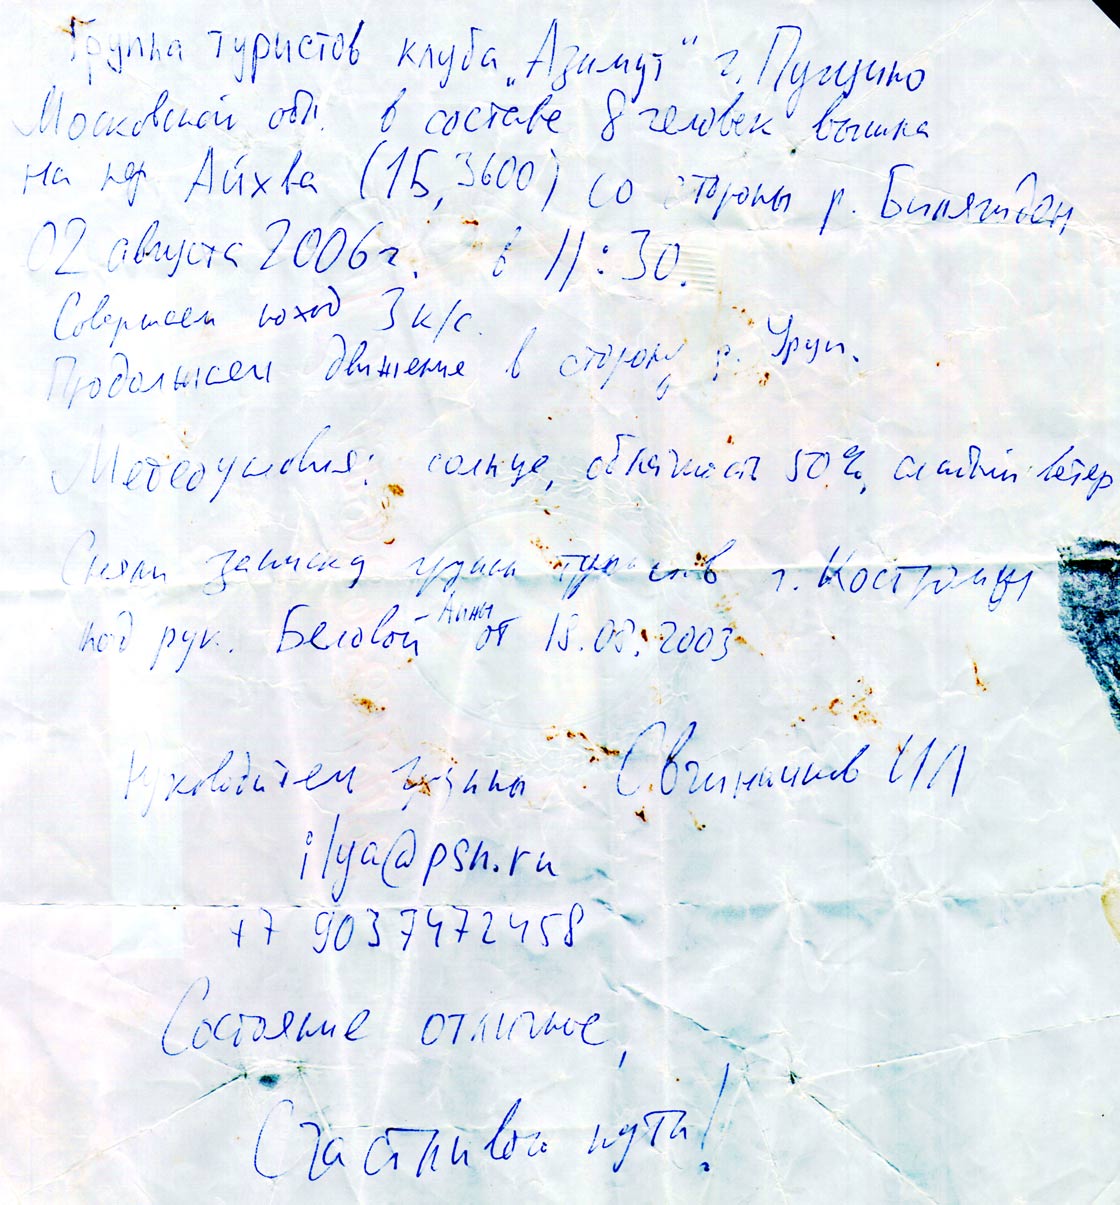 Группа туристов клуба „Азимут" г. Пущино
Московской обл. в составе 8 человек вышла
на пер. Айхва (1Б, 3600) со стороны р. Бижгон
02 августа 2006г. в 11:30.
Совершаем поход 3 к/с.
Продолжаем движение в сторону р. Уруп.
Метеоусловия: солнце, облачность 50%, слабый ветер
Сняли записку группы туристов г. Костромы
под рук. Беловой Анны от 18.08.2003
Руководитель группы Овчинников ИЛ
ilya@psn.ru
+7 9037472458
Состояние отличное,
Счастливого пути!